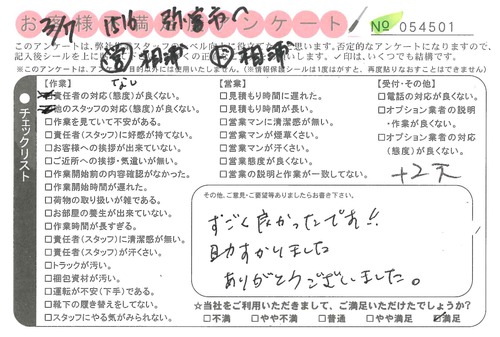 お客様満足アンケート № 054501
3/7 1516 弥富市へ
このアンケートは、弊社
記入後シールを上に
※このアンケートは、
目的以外には使用いたしません。(情報保護シールは1度はがすと、再度貼りなおすことはできません)
チェックリスト
【作業】 なし
責任者の対応(態度)が良くない。
他のスタッフの対応(態度)が良くない。
□作業を見ていて不安がある。
□責任者(スタッフ)に好感が持てない。
□お客様への挨拶が出来ていない。
□ご近所への挨拶・気遣いが無い。
□作業開始前の内容確認がなかった。
□作業開始時間が遅れた。
□荷物の取り扱いが雑である。
□お部屋の養生が出来ていない。
□作業時間が長すぎる。
□責任者(スタッフ)に清潔感が無い。
□責任者(スタッフ)が汗くさい。
□トラックが汚い。
□梱包資材が汚い。
□運転が不安(下手)である。
□靴下の履き替えをしてない。
□スタッフにやる気がみられない。
【営業】
□見積もり時間に遅れた。
□見積もり時間が長い。
□営業マンに清潔感が無い。
□営業マンが煙草くさい。
□営業マンが汗くさい。
□営業態度が良くない。
□営業の説明と作業が一致してない。
【受付・その他】
□電話の対応が良くない。
□オプション業者の説明
・作業が良くない。
□オプション業者の対応
(態度)が良くない。
その他、ご意見・ご要望等ありましたらお書き下さい。
すごく良かったです!!
助すかりました
ありがとうございました。
☆当社をご利用いただきまして、ご満足いただけたでしょうか?
□不満 □やや不満 □普通 □やや満足 ☑満足